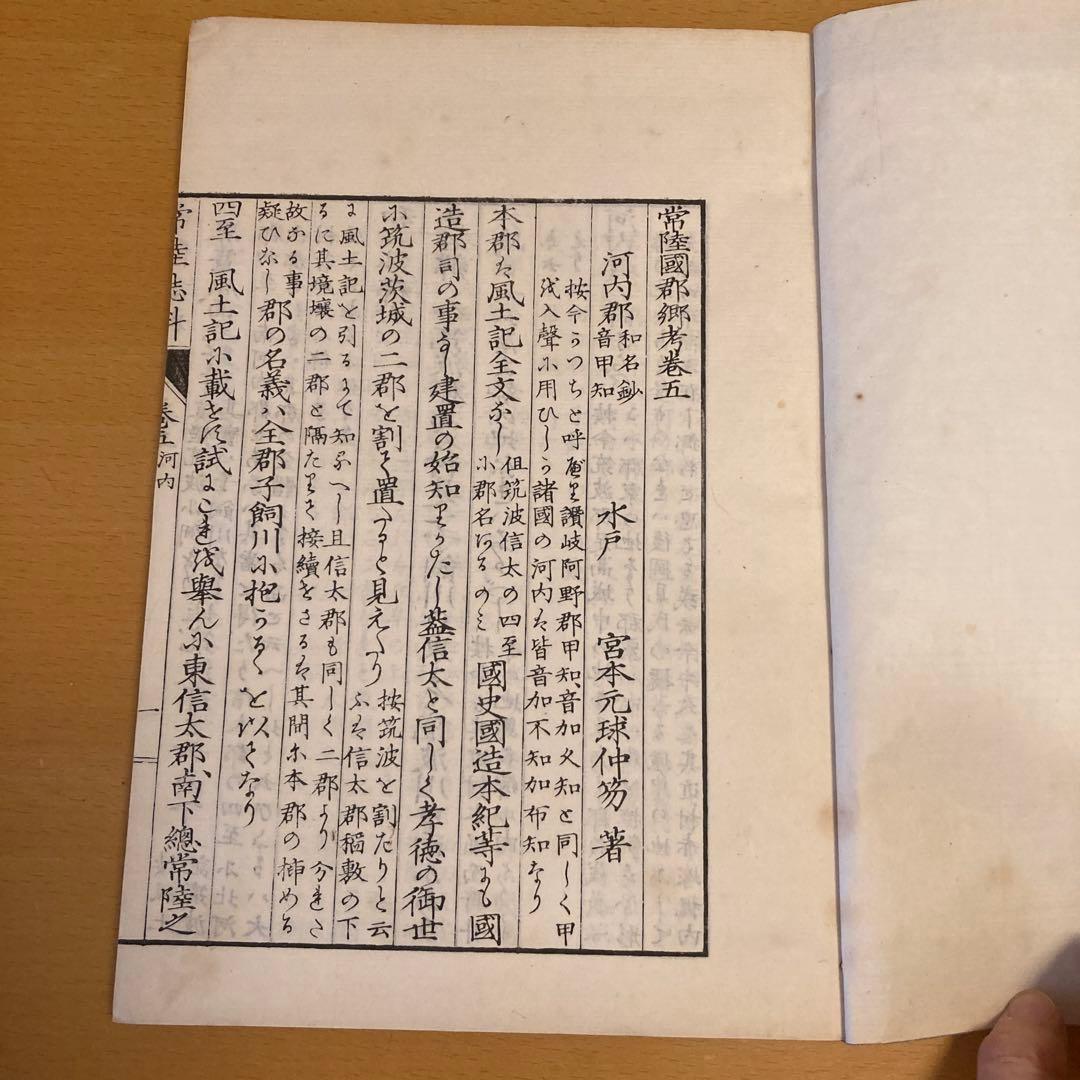 常陸國郡郷考卷五
河内郡 和名鈔音甲知 水戸 宮本元球仲笏 著
按今かつちと呼へり讃岐阿野郡甲知音加父知と同しく甲
を入聲に用ひしか諸國の河内は皆音加不知加布知なり
本郡は風土記全文なし 但筑波信太の四至に郡名あるのみ 國史國造本紀等にも國
造郡司の事なし建置の始知りかたし葢信太と同しく孝徳の御世
に筑波茨城の二郡を割て置たりと見えたり 按筑波を割たりと云ふは信太郡稲敷の下
に風土記を引るにて知るへし且信太郡も同しく二郡より分れた
るに其境壤の二郡と隔たりて接續せさるは其間に本郡の挿める
故なる事疑ひなし 郡の名義ハ全郡子飼川に抱かるゝを以てなり
四至 風土記に載せす試にこれを擧んに東信太郡、南下總常陸之
常陸誌料 卷五河内 一